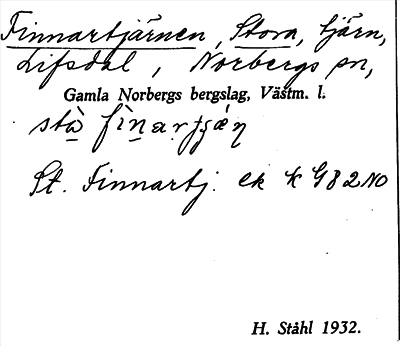 Finnartjärnen, Stora, tjärn,
Lifsdal, Norbergs sn,
Gamla Norbergs bergslag, Västm. l.
St. Finnartj. ek K 982 NO
H. Ståhl 1932.